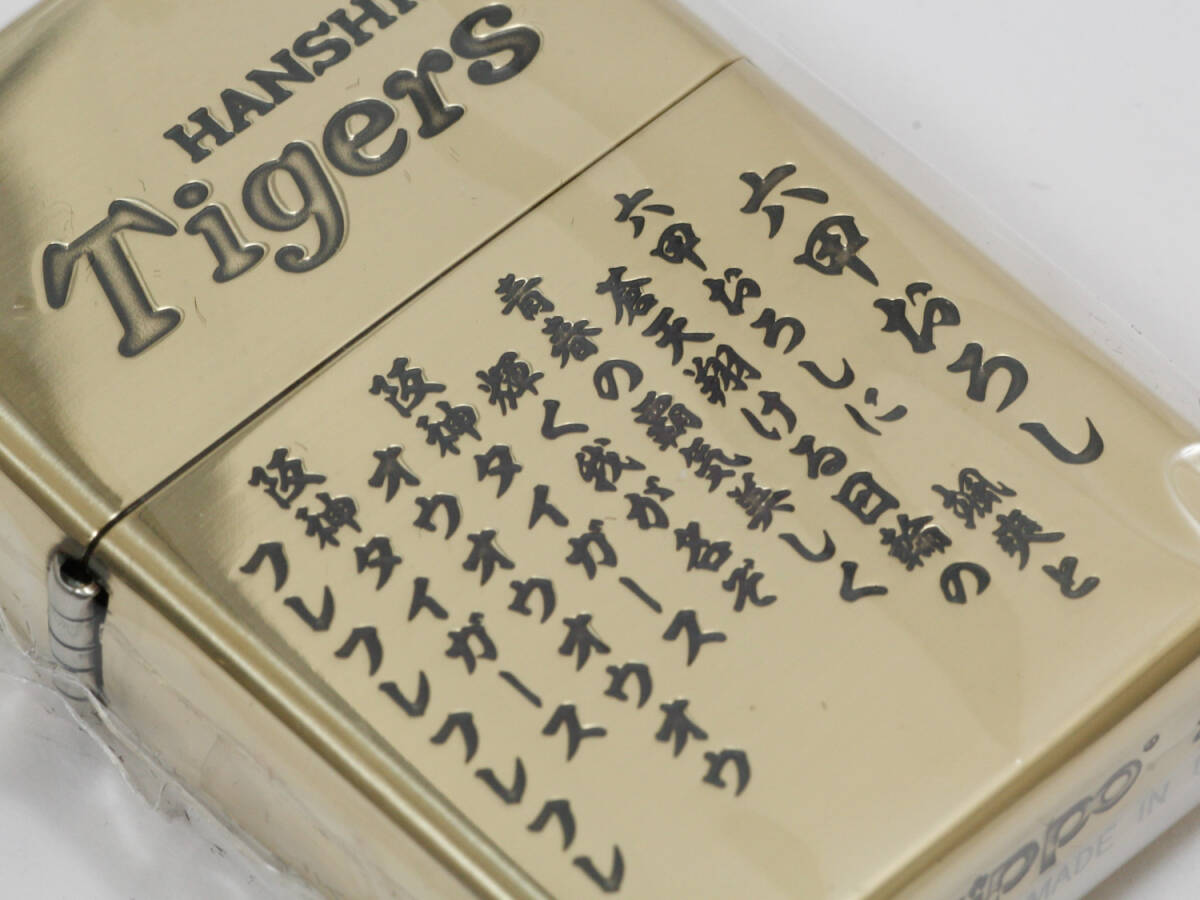 HANSHI
Tigers
六甲おろし
六甲おろしに 颯爽と
蒼天翔ける日輪の
青春の覇気美しく
輝く我が名ぞ
阪神タイガース
オウオウオウオウ
阪神タイガース
フレフレフレフレ
ippo
MADE IN